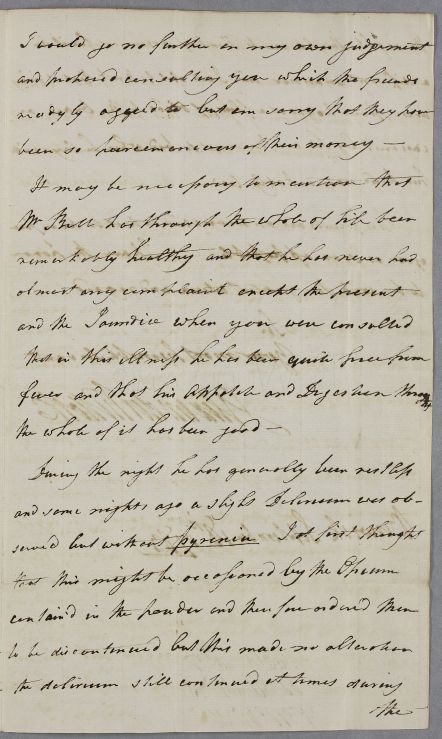 I would go no further on my own Judgement
and proposed consulting you which the friends
readyly agreed to but am sorry that they have
been so parcemoneous of their money —
It may be necessary to mention that
Mr Bell has through the whole of life been
remarkably healthy and that he has never had
almost any complaint except the present
and the Jaundice when you were consulted
that in this illness he has been quite free from
fever and that his Appetite and Digestion throug
the whole of it has been good —
During the night he has generally been restless
and some nights ago a slight Delirium was ob-
served but without pyrexia I at first thought
that this might be occasioned by the Opium
contain'd in the powder and therefore ordered them
to be discontinued but this made no alteration
the delirium still continued at times during
the